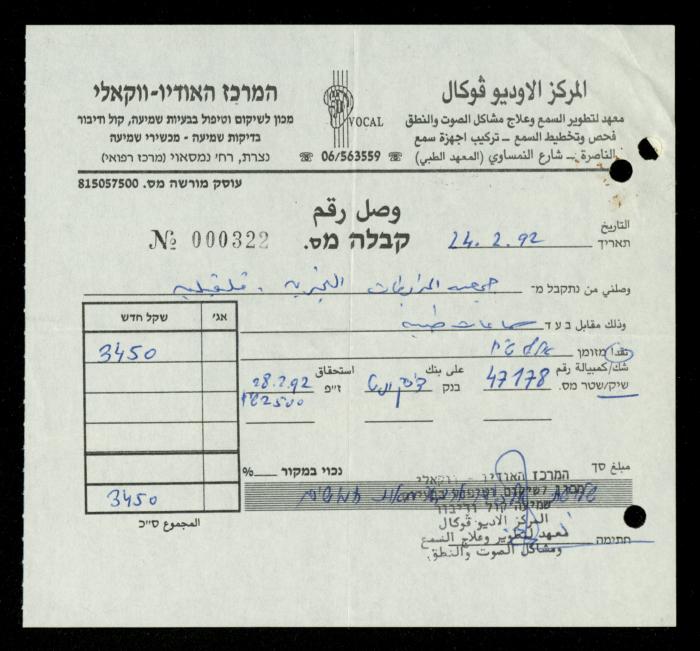 המרכז האודיו-ווקאלי
מכון לשיקום וטיפול בבעיות שמיעה, קול ודיבור
בדיקות שמיעה - מכשירי שמיעה
נצרת, רח׳ נמסאוי (מרכז רפואי)
VOCAL
☏ 06/563559 ☏
المركز الاوديو ڤوكال
معهد لتطوير السمع وعلاج مشاكل الصوت والنطق
فحص وتخطيط السمع ــ تركيب اجهزة سمع
الناصرة ــ شارع النمساوي (المعهد الطبي)
עוסק מורשה מס. 815057500
وصل رقم
קבלה מס. № 000322
التاريخ
תאריך 24.2.92
وصلني من נתקבל מ־ جمعية المرابطات الخيرية . قلقيلية
وذلك مقابل בעד سماعات طبية
نقدا מזומן אלף ש״ח
شك/كمبيالة رقم على بنك استحقاق
שיק/שטר מס. 47178 בנק דיסקונט ז״פ 28.2.92
2500 ש״ח
אג׳ שקל חדש
3450
مبلغ סך
נכוי במקור %
3450
המجموع ס״כ
המרכז האודיו - ווקאלי
שמיעה קול ודיבור
المركز الاديو ڤوكال
معهد لتطوير وعلاج السمع
ومشاكل الصوت والنطق
חתימה